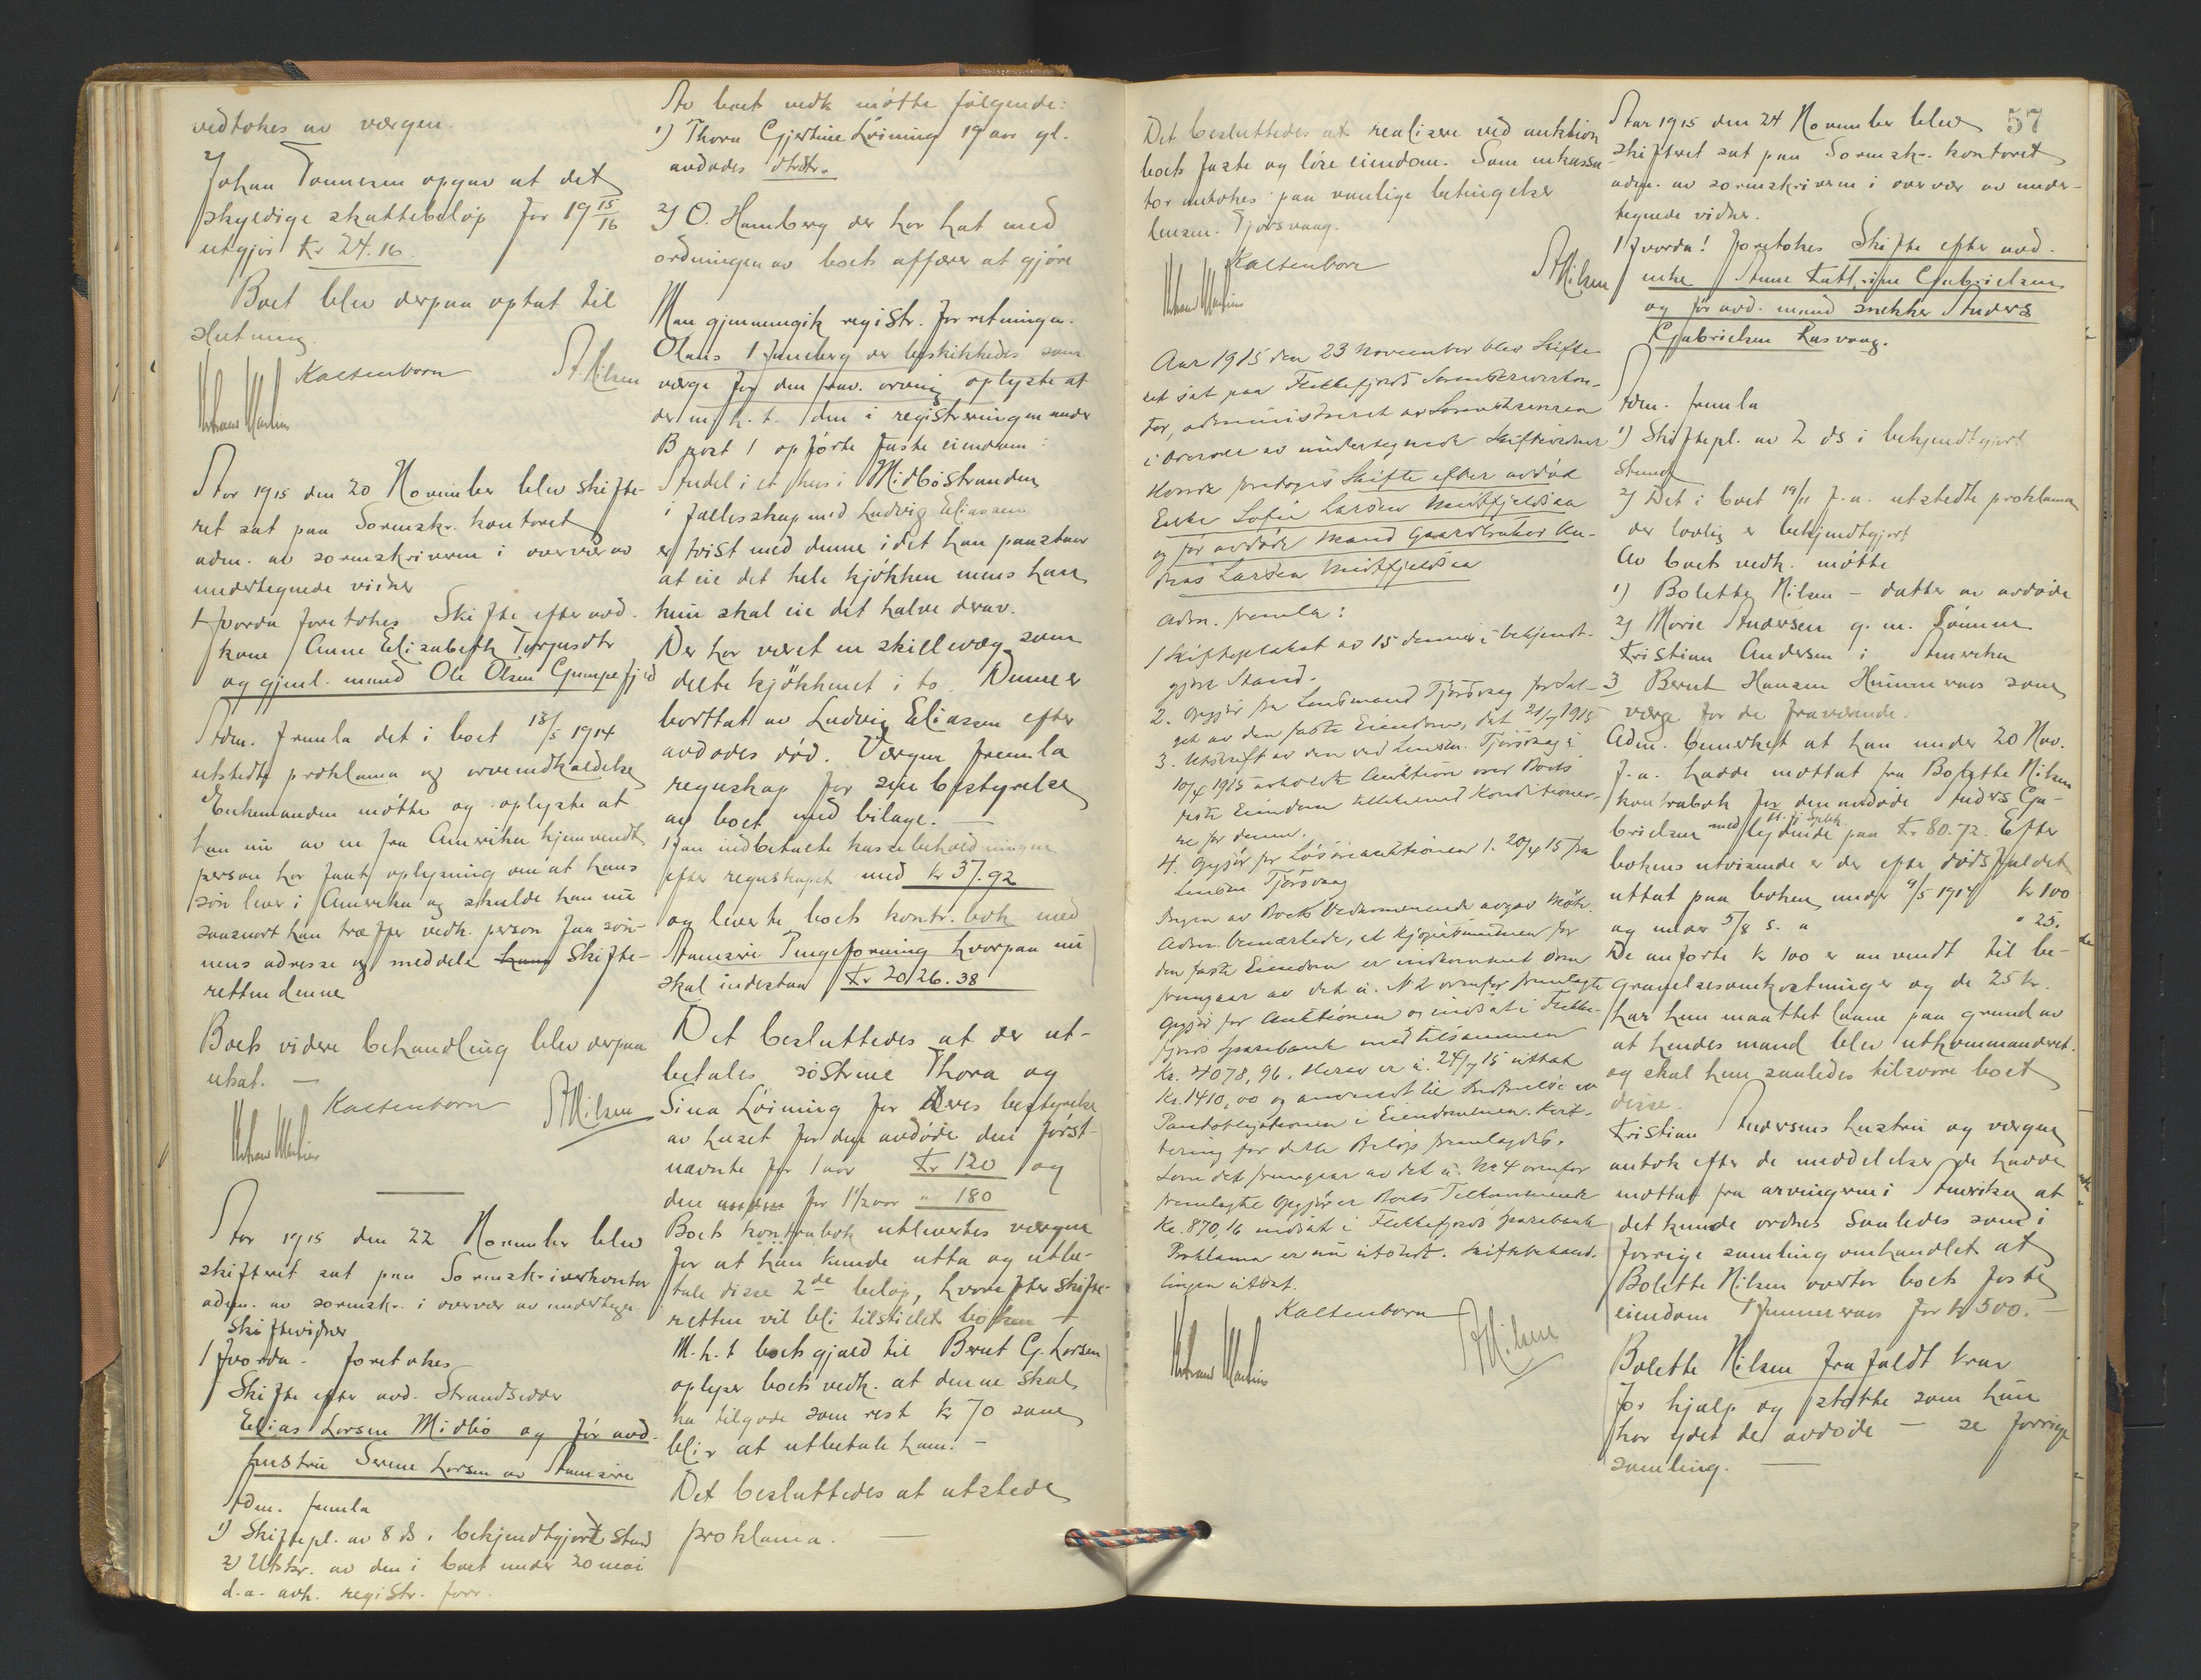 vedtokes av værgen.
Johan Tønnesen opgav at det
skyldige skattebeløp for 19 15/16
utgjør Kr 24.16.
Boet blev derpaa optat til
slutning.
Kaltenborn
A. Nilsen
Aar 1915 den 20 November blev skifte-
ret sat paa Sorenskr. kontoret
adm. av sorenskriveren i overvær av
undertegnede vidner
Hvorda foretokes Skifte efter avd.
kone Anne Elisabeth Torjusdtr
og gjenl. mand Ole Olsen Gumpefjed
Adm. fremla det i boet 18/5 1914
utstedte proklama og arveindkaldelse
Enkemanden møtte og oplyste at
han nu av en fra Amerika hjemvendt
person har faat oplysning om at hans
søn lever i Amerika og skulde han nu
saasnart han træffer vedk. person faa søn-
nens adresse og meddele hans Skifte-
retten denne
Boets videre behandling blev derpaa
utsat. —
Kaltenborn
A. Nilsen
Aar 1915 den 22 November blev
skifteret sat paa Sorenskriverkontor
adm. av sorenskr. i overvær av undertegn.
Skiftevidner
Hvorda. foretokes
Skifte efter avd. Strandsidder
Elias Larsen Midbø og før avd.
hustru Serine Larsen av Anæsire
Adm. fremla
1) Skiftepl. av 8 ds i bekjendtgjort Stand
2) Utskr. av den i boet under 20 mai
d.a. avh. registr. forr.
Av boet vedk møtte følgende:
1) Thora Gjertine Løining 19 aar gl.
avdødes dtrdtr.
2) O. Hamberg der har hat med
ordningen av boets affærer at gjøre
Man gjennemgik registr. forretningen.
Olaus Hamberg der beskikkedes som
værge for den frav. arving oplyste at
der m. h. t. den i registreringen under
B post 1 opførte faste eiendom:
Andel i et hus i Midbøstranden
i fællesskap med Ludvig Eliassen
er tvist med denne idet han paastaar
at eie det hele kjøkken mens han
kun skal eie det halve derav.
Der har været en skillevæg som
delte kjøkkenet i to. Denne er
borttat av Ludvig Eliasen efter
avdødes død. Værgen fremla
regnskap for sin bestyrelse
av boet med bilage. —
Han indbetalte kassebeholdningen
efter regnskapet med kr 37.92
og leverte boets kontr. bok med
Anæsire Pengeforening hvorpaa nu
skal indestaa Kr 2026.38
Det besluttedes at der ut-
betales søstrene Thora og
Sina Løining for deres bestyrelse
av huset for den avdøde den først-
nævnte for 1 aar Kr 120 og
den anden for 1½ aar " 180
Boets kontrabok utleverdes værgen
for at han kunde utta og utbe-
tale disse 2de beløp, hvorefter skifte-
retten vil bli tilstillet boken —
M. h. t boets gjæld til Bernt G. Larsen
oplyser boets vedk. at denne skal
ha tilgode som rest kr 70 som
blir at utbetale ham. —
Det besluttedes at utstede
proklama. —
Det besluttedes at realisere ved auktion
boets faste og løse eiendom. Som inkassa-
tor antokes paa vanlige betingelser
lensm. Tjørsvaag.
Kaltenborn
A Nilsen
Aar 1915 den 23 November blev Skifte-
ret sat paa Flekkefjords Sorenskriverkon-
tor, administreret av Sorenskriveren
i overvær av undertegnede Skiftevidner
Hvorda foretoges Skifte efter avdøde
Enke Sofie Larsen Midtfjeldsaa
og før avdøde Mand Gaardbruker An-
dreas Larsen Midtfjeldsaa
Adm. fremla:
1 Skifteplakat av 15 dennes i bekjendt-
gjort Stand.
2. Opgjør fra Lensmand Tjørsvaag for Sal-
get av den faste Eiendom, dat 21/7 1915
3. Utskrift av den ved Lensm. Tjørsvaag i
10/4 1915 avholdte Auktion over Boets
faste Eiendom tillikemed Konditioner-
ne for denne.
4. Opgjør for Løsøreauktionen 1. 20/4 15 fra
Lensm Tjørsvaag
Ingen av Boets Vedkommende avgav Møte.
Adm. bemærkede, at Kjøpesummen for
den faste Eiendom er indkommet som
fremgaar av det u. N 2 ovenfor fremlagte
Opgjør for Auktionen og indsat i Flekke-
fjords Sparebank med tilsammen
Kr. 4078,96. Herav er u. 24/7 15 uttat
Kr. 1410,00 og anvendt til Indfrielse av
Pantobligationen i Eiendommen. Kvit-
tering for dette Beløp fremlagdes.
Som det fremgaar av det u. No 4 ovenfor
fremlagte Opgjør er Boets Tilkommende
Kr. 870,16 indsat i Flekkefjords Sparebank
Proklama er nu utløbet. Skiftebehand-
lingen utsat.
Kaltenborn
A Nilsen
57
Aar 1915 den 24 November blev
skifteret sat paa Sorenskr. kontoret
adm. av sorenskriveren i overvær av under-
tegnede vidner.
Hvorda! foretokes Skifte efter avd.
enke Anne Kathrine Gabrielsen
og før avd. mand snekker Anders
Gabrielsen Rasvaag.
Adm. fremla
1) Skiftepl. av 2 ds i bekjendtgjort
Stand
2) Det i boet 19/11 f.a. utstedte proklama
der lovlig er bekjendtgjort
Av boets vedk. møtte
1) Bolette Nilsen – datter av avdøde
2) Marie Andersen g. m. Tønnes
Kristian Andersen i Amerika
3 Bernt Hansen Hummervas som
værge for de fraværende.
Adm. bemerket at han under 20 Nov.
f.a. hadde mottat fra Bolette Nilsen
kontrabok for den avdøde Anders Ga-
brielsen med Fl. fj. Spbk. lydende paa Kr 80.72. Efter
bokens utvisende er der efter dødsfaldet
uttat paa boken under 9/5 1914 kr 100
og under 5/8 s. a " 25.
De anførte kr 100 er anvendt til be-
gravelsesomkostninger og de 25 kr.
har hun maattet laane paa grund av
at hendes mand blev utkommanderet.
og skal hun saaledes tilsvare boet
disse.
Kristian Andersens hustru og værgen
antok efter de meddelelser de hadde
mottat fra arvingerne i Amerika at
det kunde ordnes saaledes som i
forrige samling omhandlet at
Bolette Nilsen overtar boets faste
eiendom Hummervas for kr 500. —
Bolette Nilsen frafaldt krav
for hjælp og støtte som hun
har ydet de avdøde — se forrige
samling. —